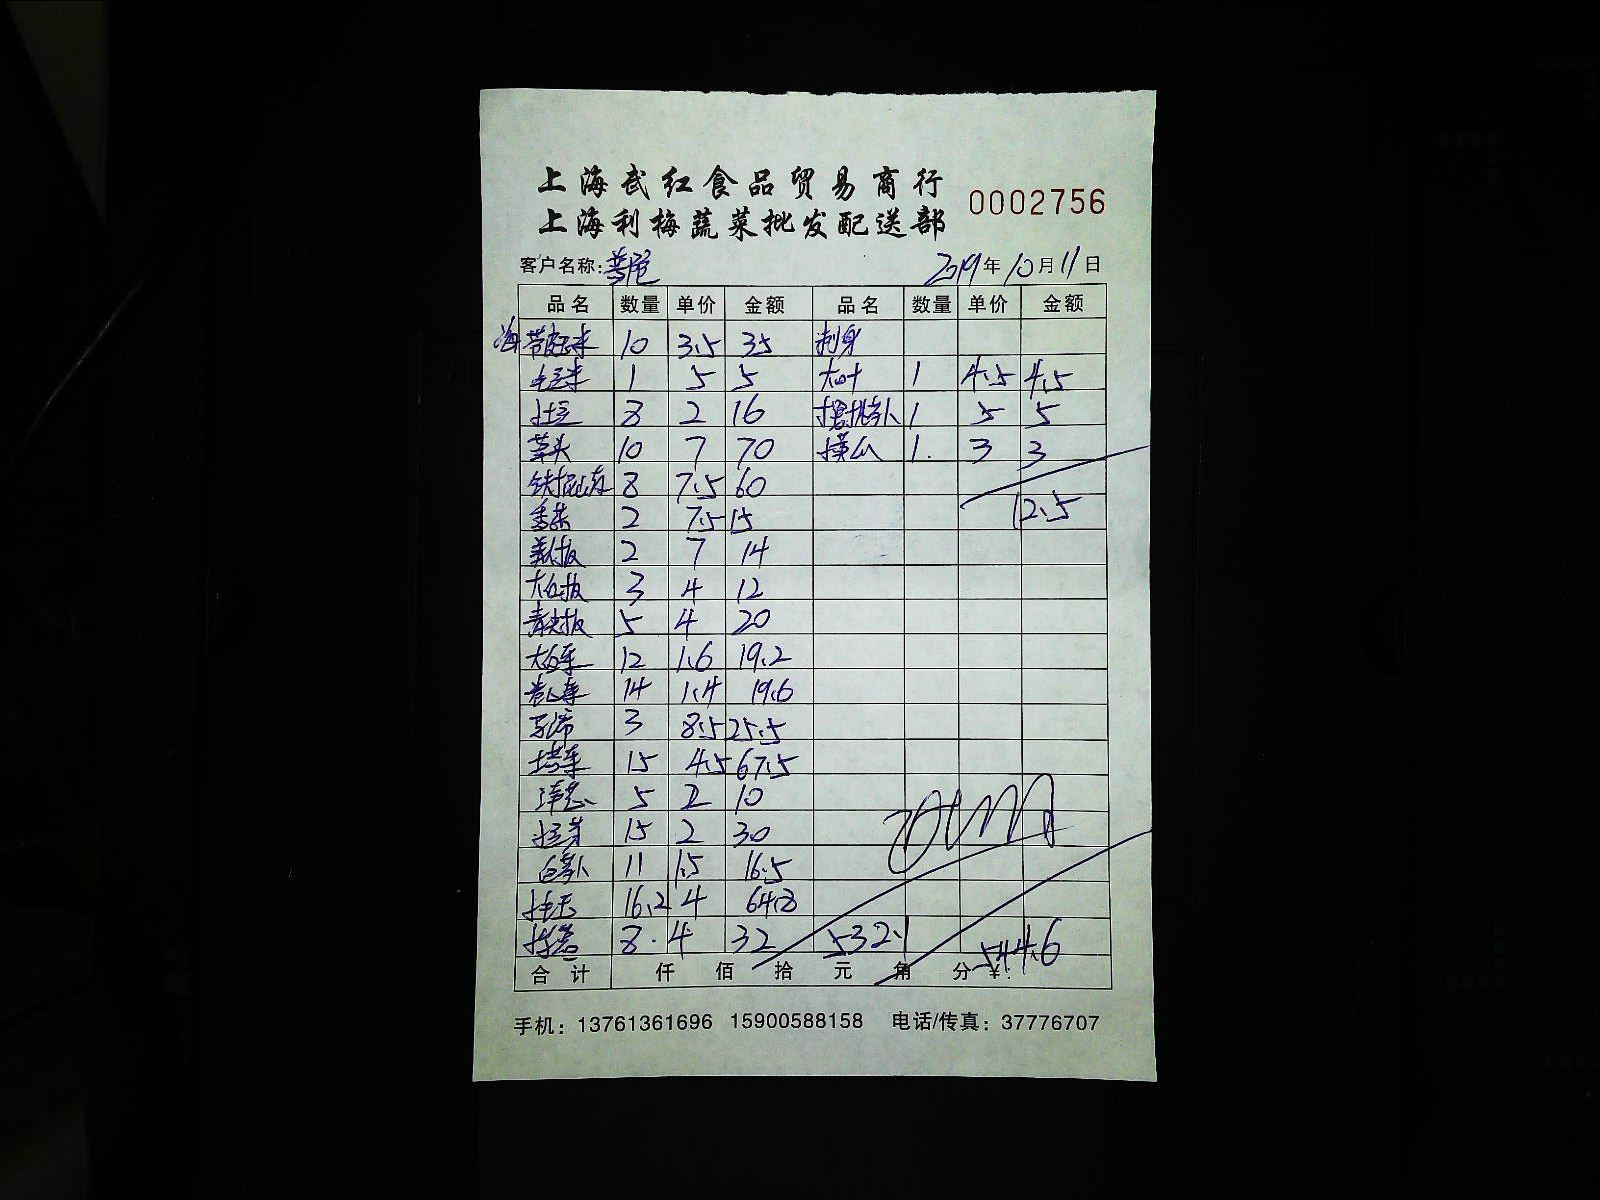 上海武红食品贸易商行
上海利梅蔬菜批发配送部
0002756
客户名称: 2019年10月11日
品名 数量 单价 金额 品名 数量 单价 金额
10 3.5 35 刺身
毛豆米 1 5 5 大叶 1 4.5 4.5
土豆 8 2 16 1 5 5
草头 10 7 70 1. 3 3
8 7.5 60
香菜 2 7.5 15 12.5
2 7 14
大红椒 3 4 12
青尖椒 5 4 20
大白菜 12 1.6 19.2
卷心菜 14 1.4 19.6
马蹄 3 8.5 25.5
塔菜 15 4.5 67.5
洋葱 5 2 10
15 2 30
白萝卜 11 1.5 16.5
16.2 4 64.8
8. 4 32 532.1 544.6
合计 仟 佰 拾 元 角 分 ¥:
手机: 13761361696 15900588158 电话/传真: 37776707